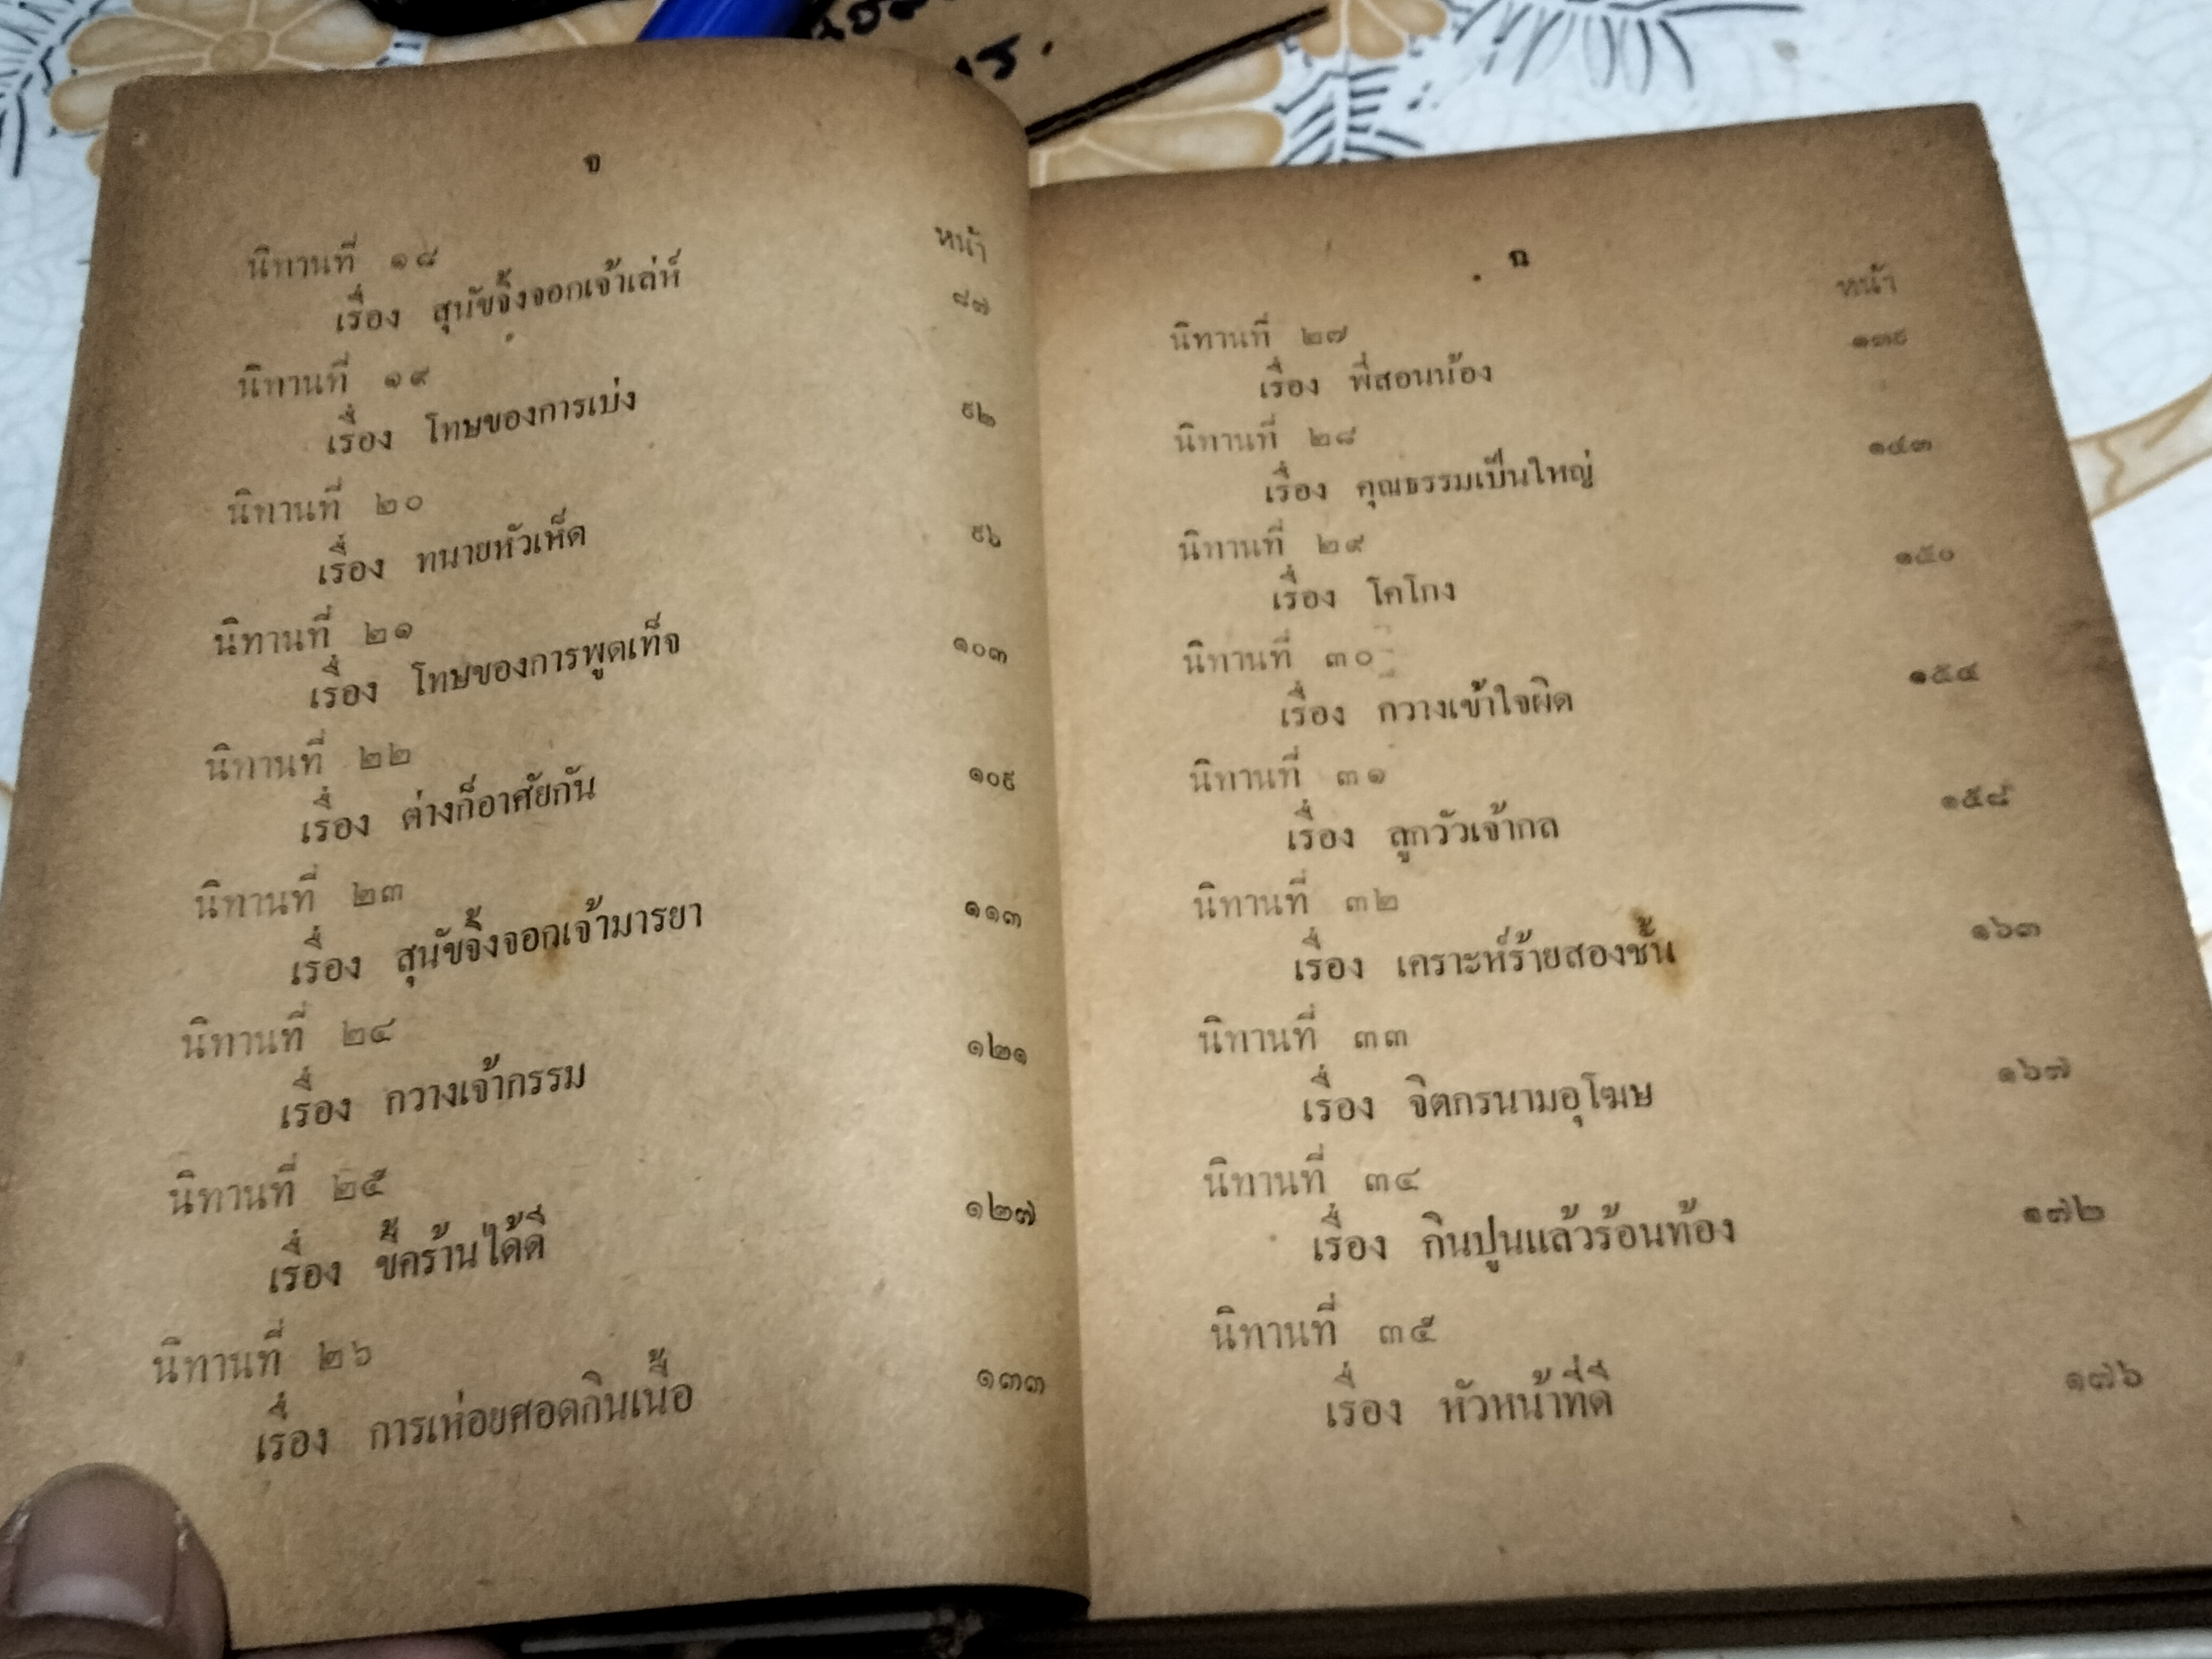 จ
หน้า
นิทานที่ ๑๘
เรื่อง สุนัขจิ้งจอกเจ้าเล่ห์ ๘๗
นิทานที่ ๑๙
เรื่อง โทษของการเบ่ง ๙๒
นิทานที่ ๒๐
เรื่อง ทนายหัวเห็ด ๙๖
นิทานที่ ๒๑
เรื่อง โทษของการพูดเท็จ ๑๐๓
นิทานที่ ๒๒
เรื่อง ต่างก็อาศัยกัน ๑๐๙
นิทานที่ ๒๓
เรื่อง สุนัขจิ้งจอกเจ้ามารยา ๑๑๓
นิทานที่ ๒๔
เรื่อง กวางเจ้ากรรม ๑๒๑
นิทานที่ ๒๕
เรื่อง ขี้คร้านได้ดี ๑๒๗
นิทานที่ ๒๖
เรื่อง การเห่อยศอดกินเนื้อ ๑๓๓
ฉ
หน้า
นิทานที่ ๒๗
เรื่อง พี่สอนน้อง ๑๓๙
นิทานที่ ๒๘
เรื่อง คุณธรรมเป็นใหญ่ ๑๔๓
นิทานที่ ๒๙
เรื่อง โคโกง ๑๕๐
นิทานที่ ๓๐
เรื่อง กวางเข้าใจผิด ๑๕๔
นิทานที่ ๓๑
เรื่อง ลูกวัวเจ้ากล ๑๕๘
นิทานที่ ๓๒
เรื่อง เคราะห์ร้ายสองชั้น ๑๖๓
นิทานที่ ๓๓
เรื่อง จิตกรนามอุโฆษ ๑๖๗
นิทานที่ ๓๔
เรื่อง กินปูนแล้วร้อนท้อง ๑๗๒
นิทานที่ ๓๕
เรื่อง หัวหน้าที่ดี ๑๗๖